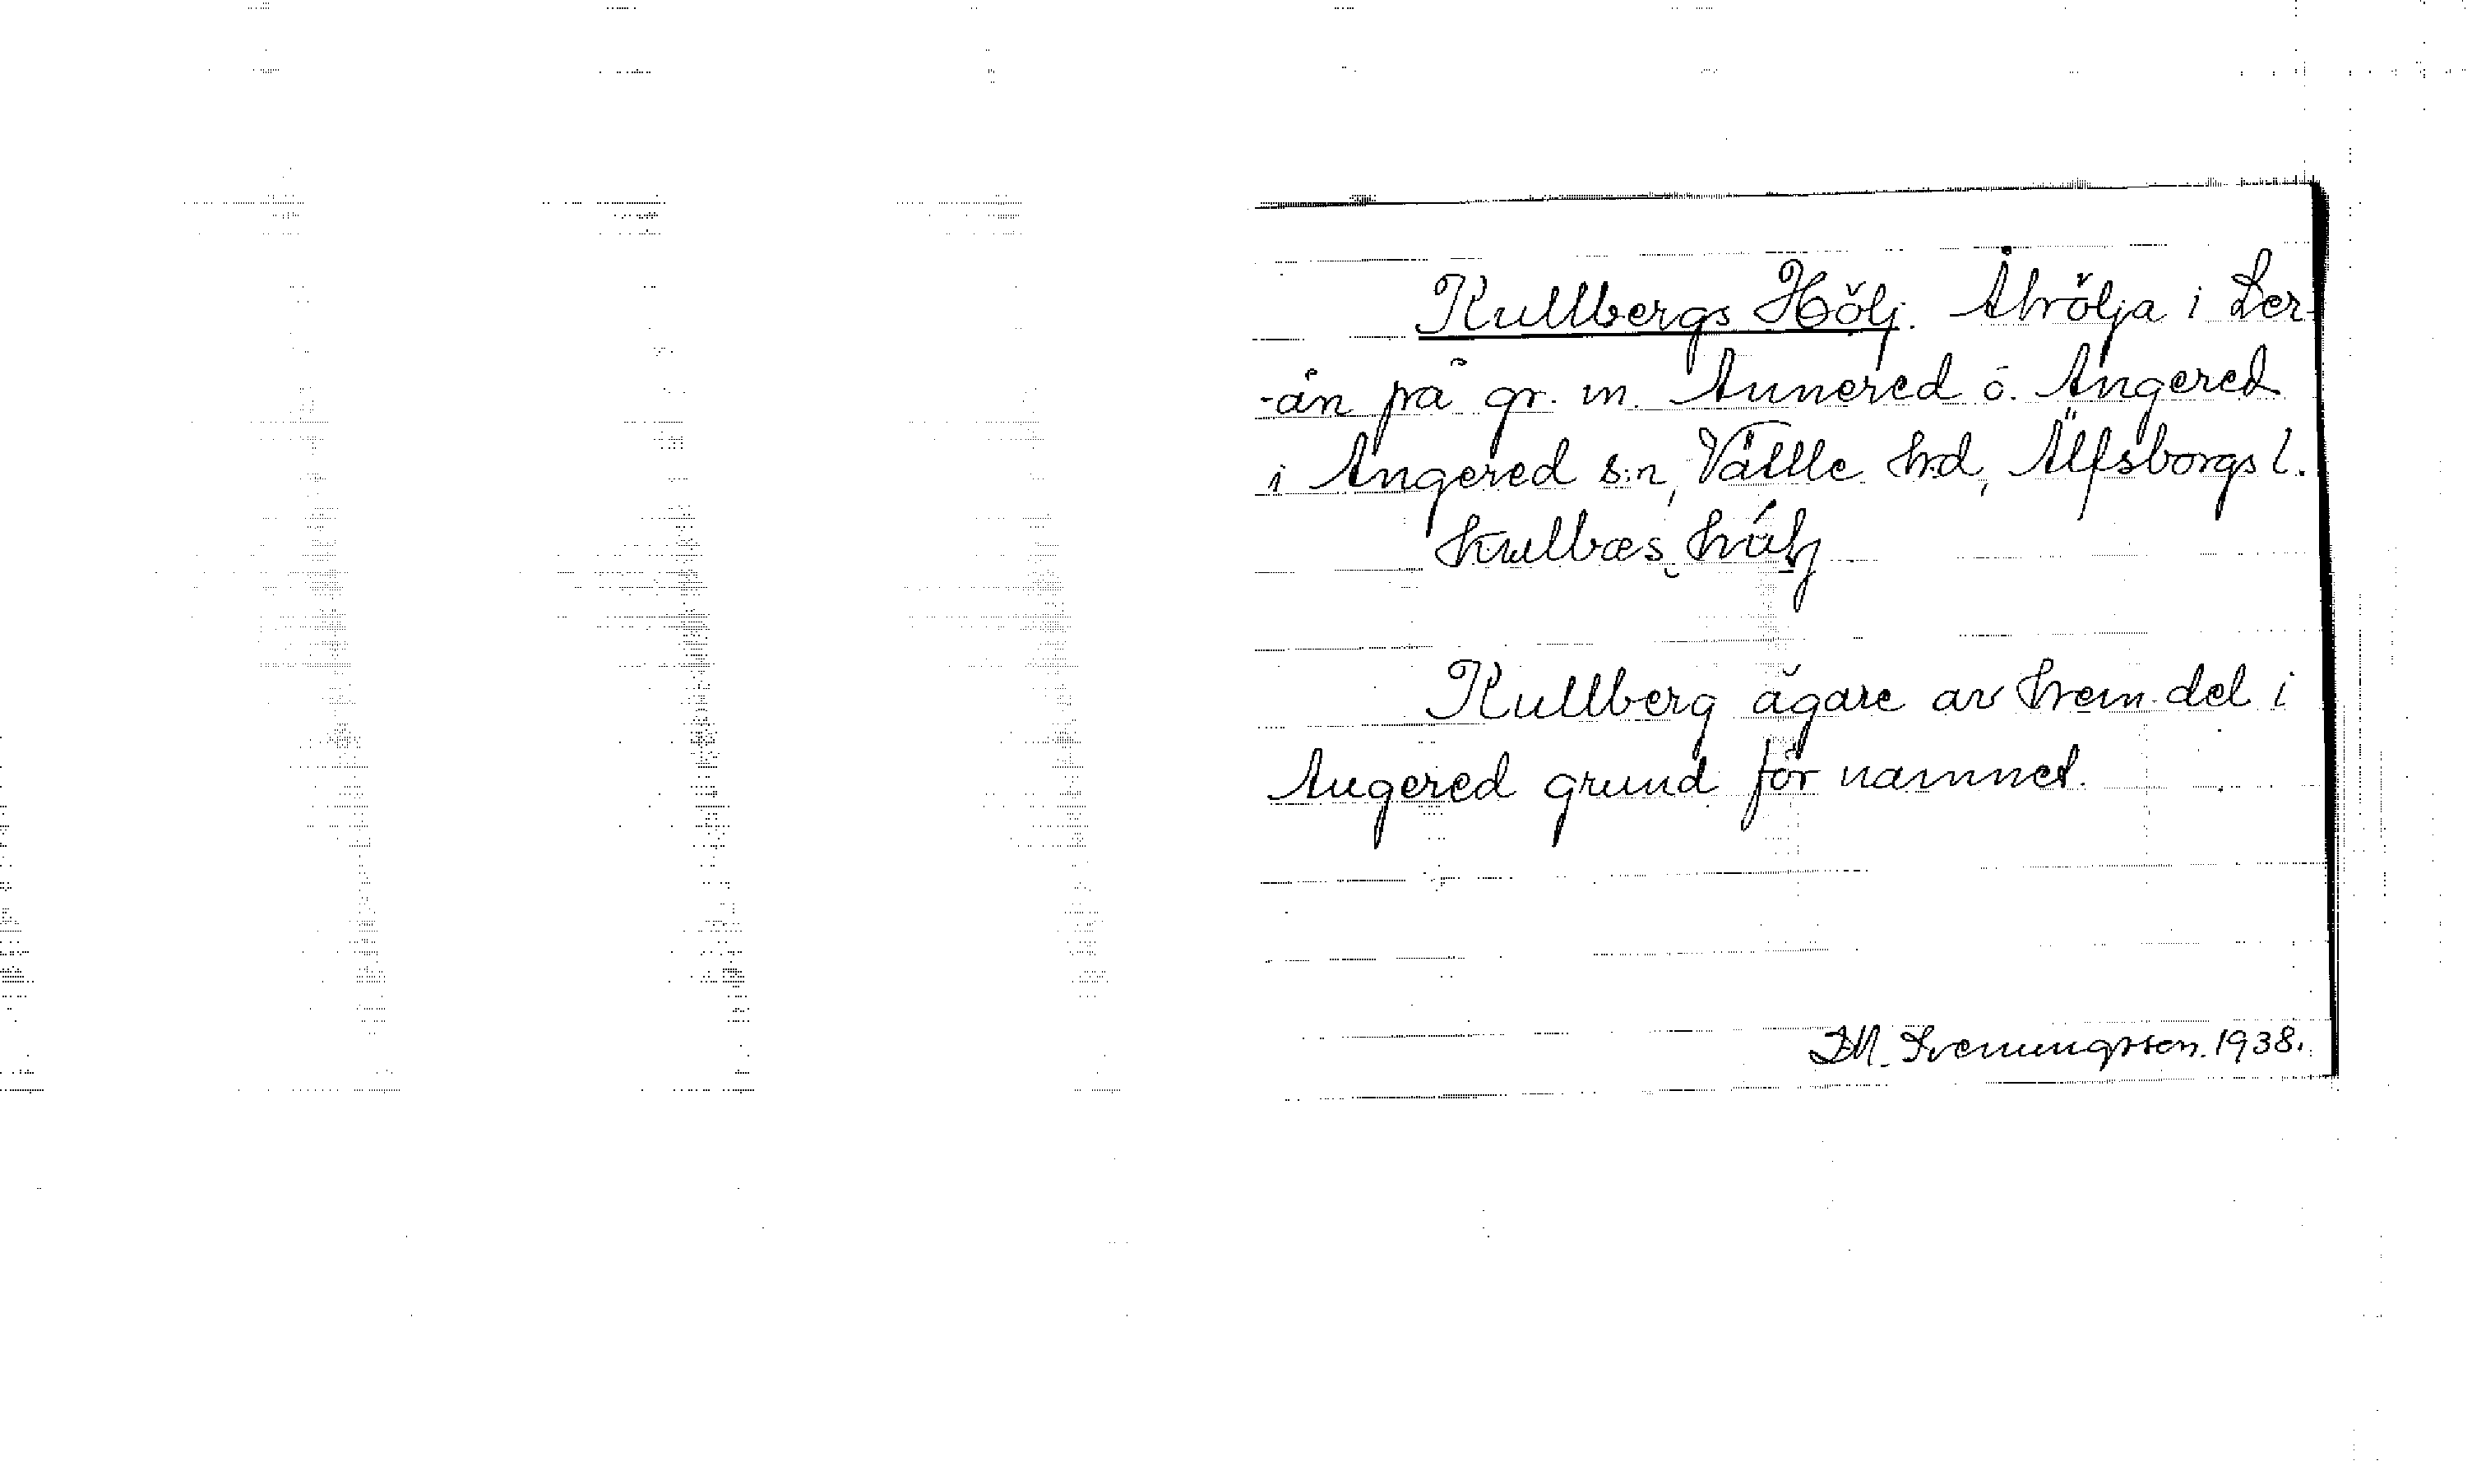 Kullbergs Hölj. Åhölja i Ler-
-ån på gr. m. Aunered o. Angered
i Angered s:n, Vättle hd, Älfsborgs l.
Kullberg ägare av hem.del i
Angered grund för namnet.
D.M. Svenungsson. 1938.